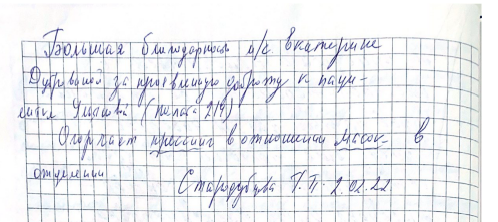 Большая благодарность м/с Екатерине
Дубровиной за проявленную доброту к паци-
ентке (палата 219)
Огорчает прессинг в отношении масок в
отделении
Стародубцева Т.П. 2.02.22